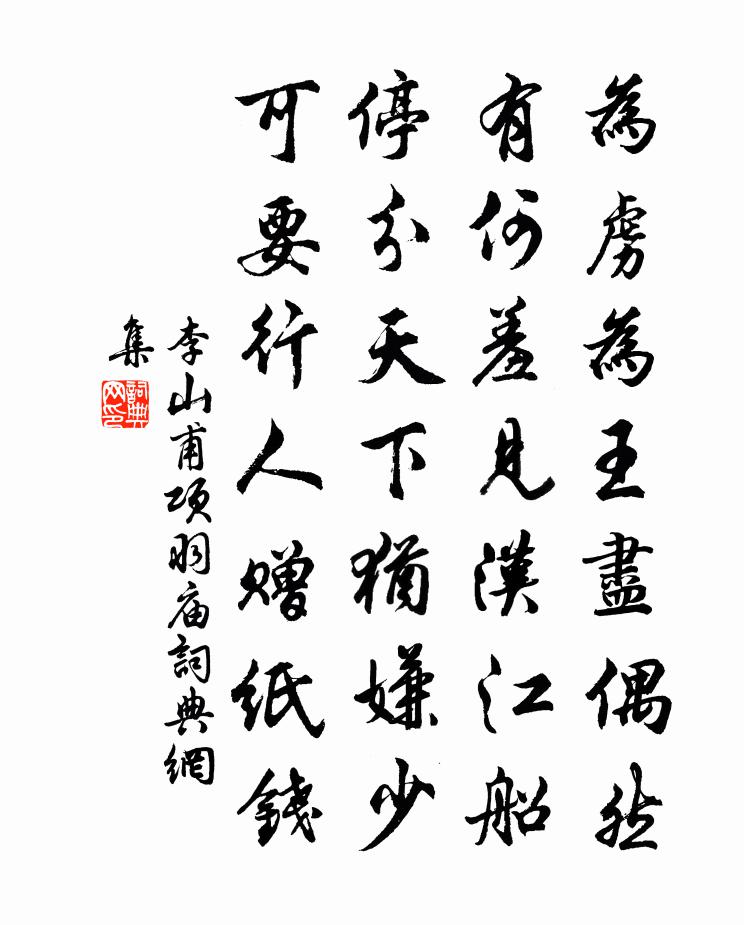 為虜為王盡偶然
有何羞見漢江船
停分天下猶嫌少
可要行人贈紙錢
李山甫項羽庙詞典網
集
詞典
网印